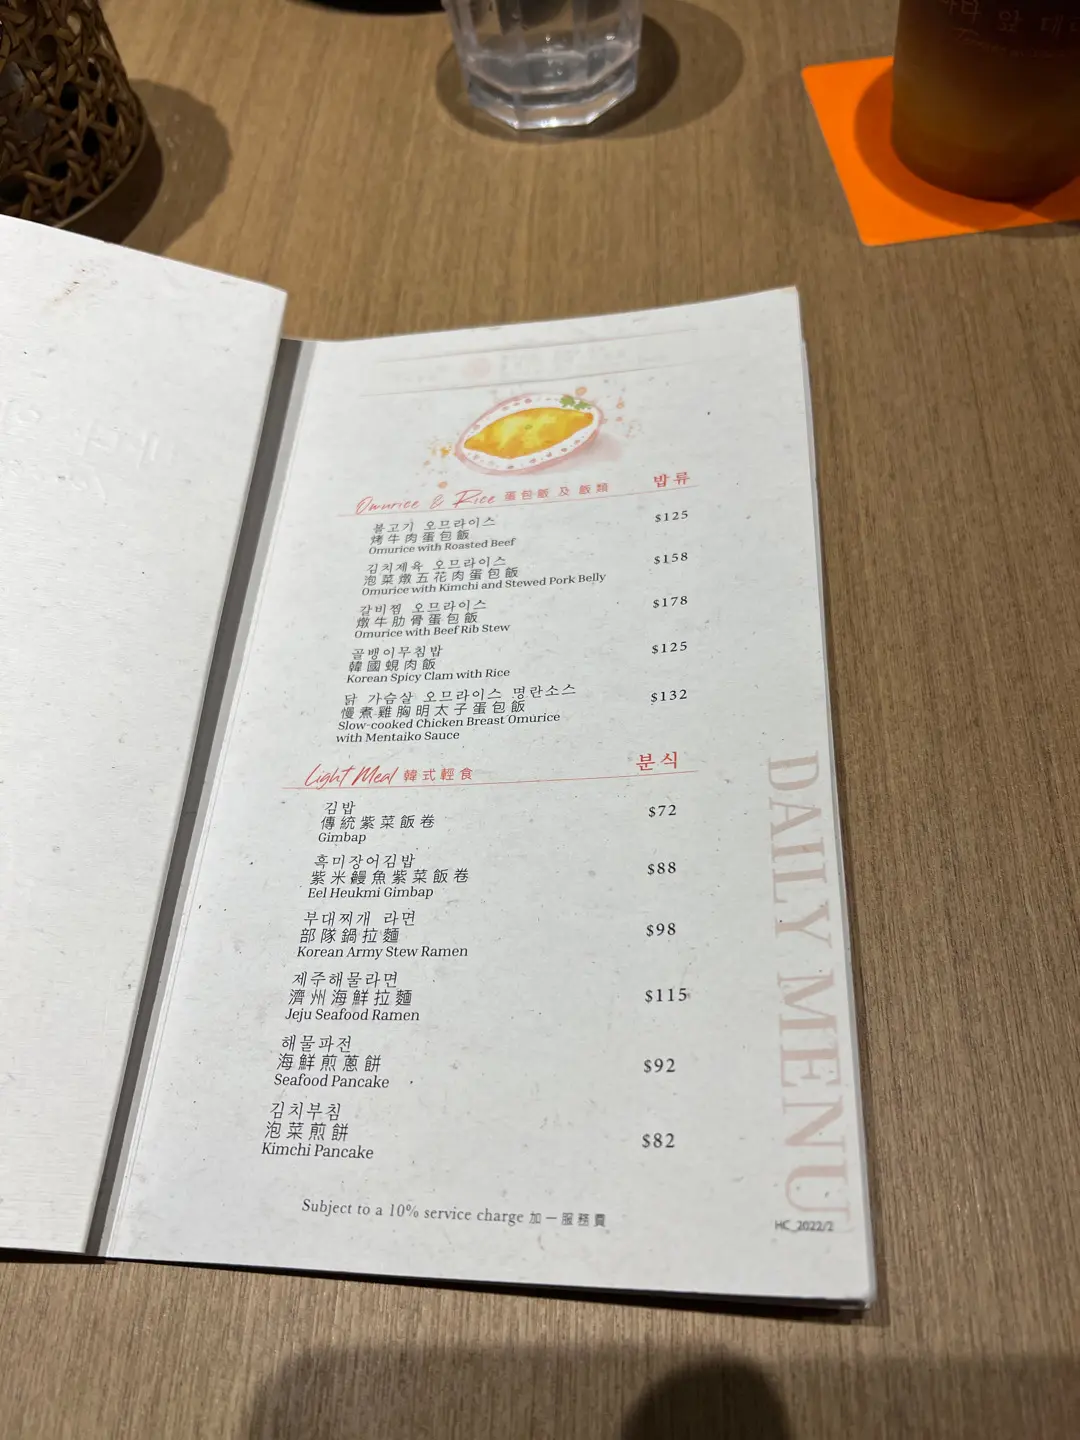 Omurice & Rice 蛋包飯 及 飯類 밥류
불고기 오므라이스
烤牛肉蛋包飯
Omurice with Roasted Beef
$125
김치제육 오므라이스
泡菜燉五花肉蛋包飯
Omurice with Kimchi and Stewed Pork Belly
$158
갈비찜 오므라이스
燉牛肋骨蛋包飯
Omurice with Beef Rib Stew
$178
골뱅이무침밥
韓國蜆肉飯
Korean Spicy Clam with Rice
$125
닭 가슴살 오므라이스 명란소스
慢煮雞胸明太子蛋包飯
Slow-cooked Chicken Breast Omurice
with Mentaiko Sauce
$132
Light Meal 韓式輕食 분식
김밥
傳統紫菜飯卷
Gimbap
$72
흑미장어김밥
紫米鰻魚紫菜飯卷
Eel Heukmi Gimbap
$88
부대찌개 라면
部隊鍋拉麵
Korean Army Stew Ramen
$98
제주해물라면
濟州海鮮拉麵
Jeju Seafood Ramen
$115
해물파전
海鮮煎蔥餅
Seafood Pancake
$92
김치부침
泡菜煎餅
Kimchi Pancake
$82
Subject to a 10% service charge 加一服務費
DAILY MENU
HC_2022/2